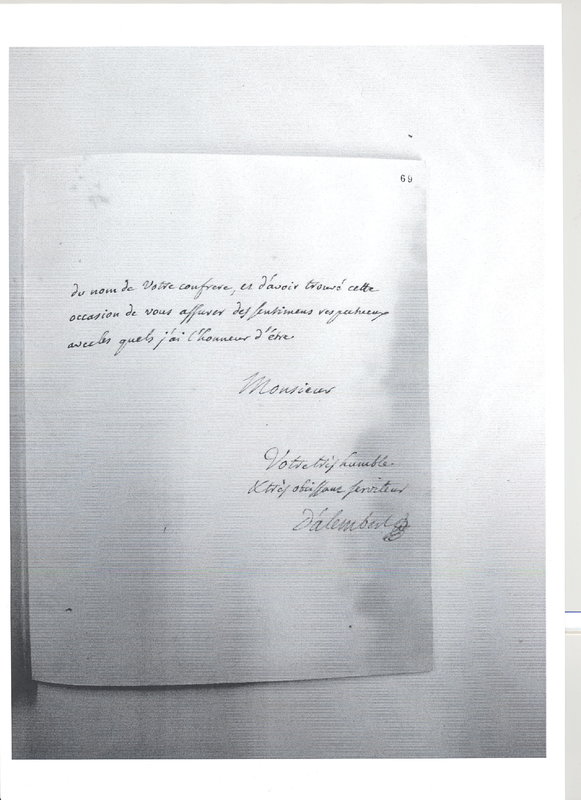 69
du nom de Votre confrere, et d'avoir trouvé cette
occasion de vous assurer des sentimens respectueux
avec les quels j'ai l'honneur d'être
Monsieur
Votre très humble
& très obeissant serviteur
D'alembert